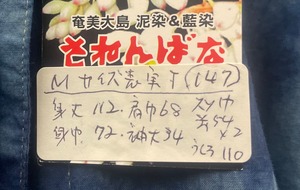 奄美大島 泥染&藍染
されんばな
Mサイズ表実寸(147)
身丈 112. 肩巾68 スソ巾
身巾 72. 袖丈34 前54×2
うしろ110